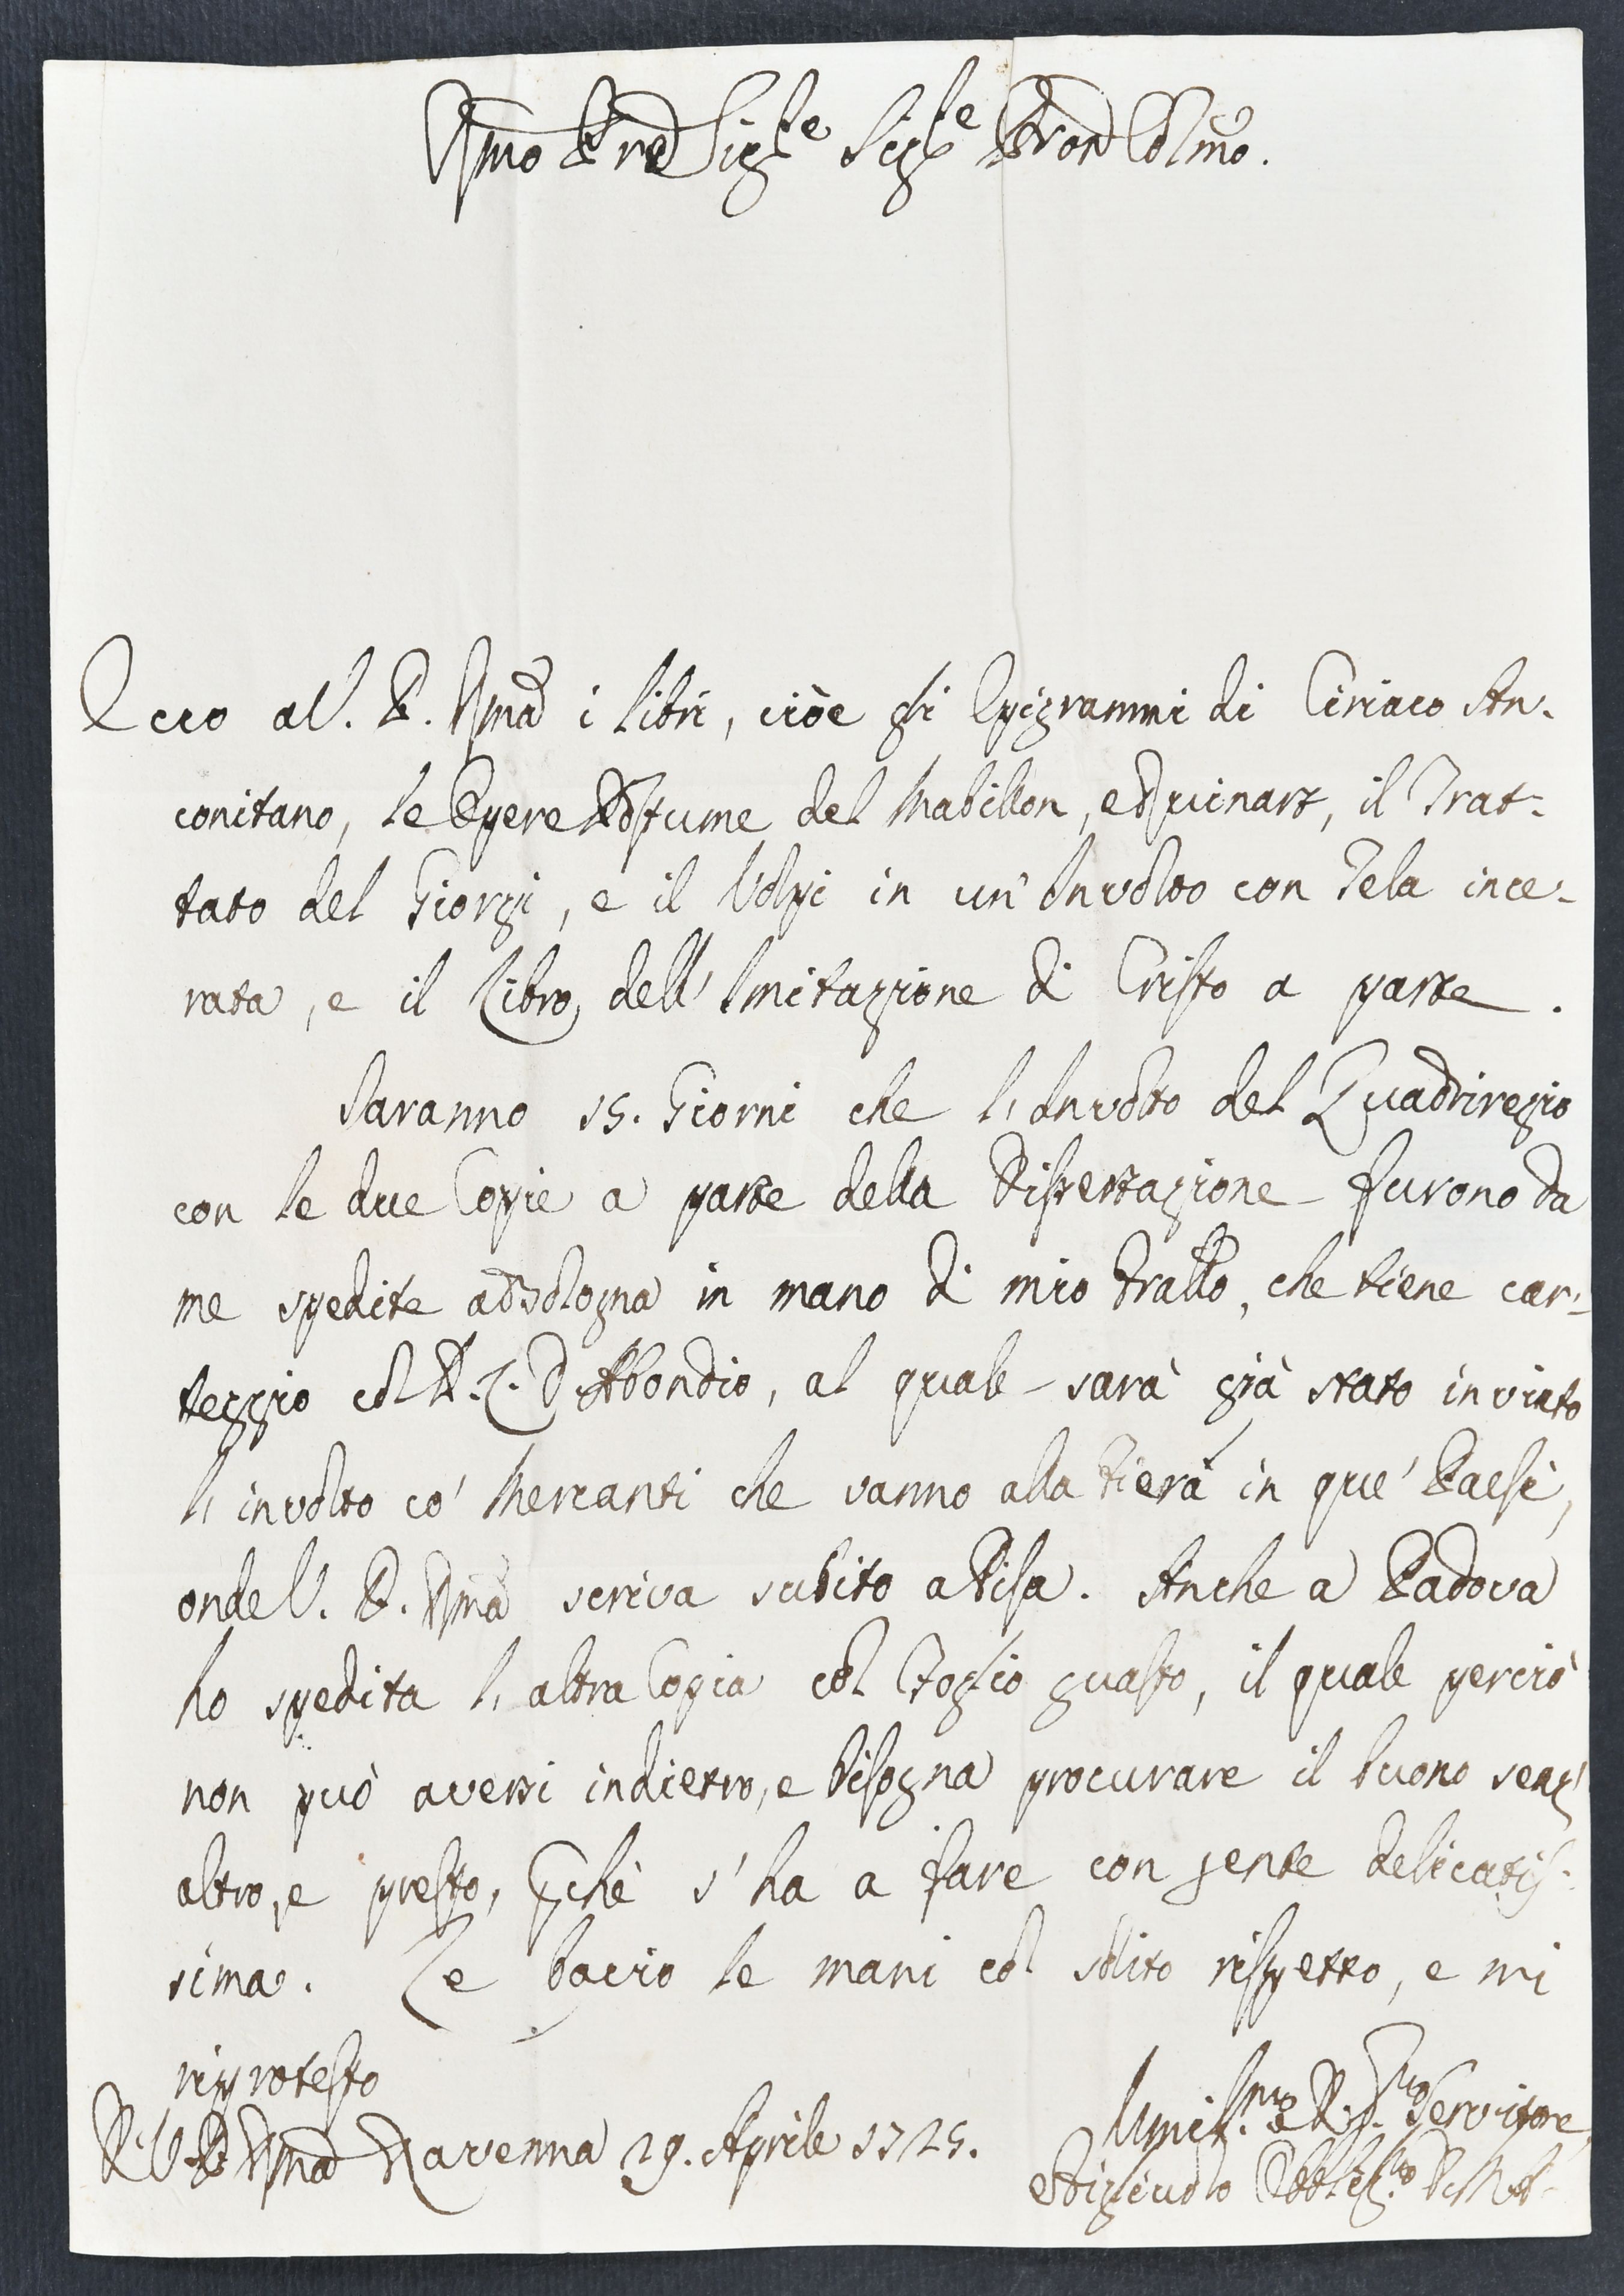 Rmo Pre Sigre Sigre Pron Colmo.
Ecco a V. P. Rma i libri, cioè gli Epigrammi di Ciriaco An-
conitano, le Opere Postume del Mabillon, e Ruinart, il Trat-
tato del Giorgi, e il Volpi in un' Involto con Tela ince-
rata, e il Libro dell' Imitazione di Cristo a parte.
Saranno 15. Giorni che l' Involto del Quadriregio
con le due Copie a parte della Dissertazione furono da
me spedite a Bologna in mano di mio Fratello, che tiene car-
teggio col P. D. Abbondio, al quale sarà già stato inviato
l' involto co' Mercanti che vanno alla Fiera in que' Paesi,
onde V. P. Rma scriva subito a Pisa. Anche a Padova
ho spedita l' altra Copia col Foglio guasto, il quale perciò
non può aversi indietro, e bisogna procurare il buono senz'
altro, e presto, Pchè s' ha a fare con gente delicatis-
sima. Le bacio le mani col solito rispetto, e mi
riprotesto
D. V. P. Rma Ravenna 29. Aprile 1725.
Umilmo e D.mo Servitore
Obblig.mo